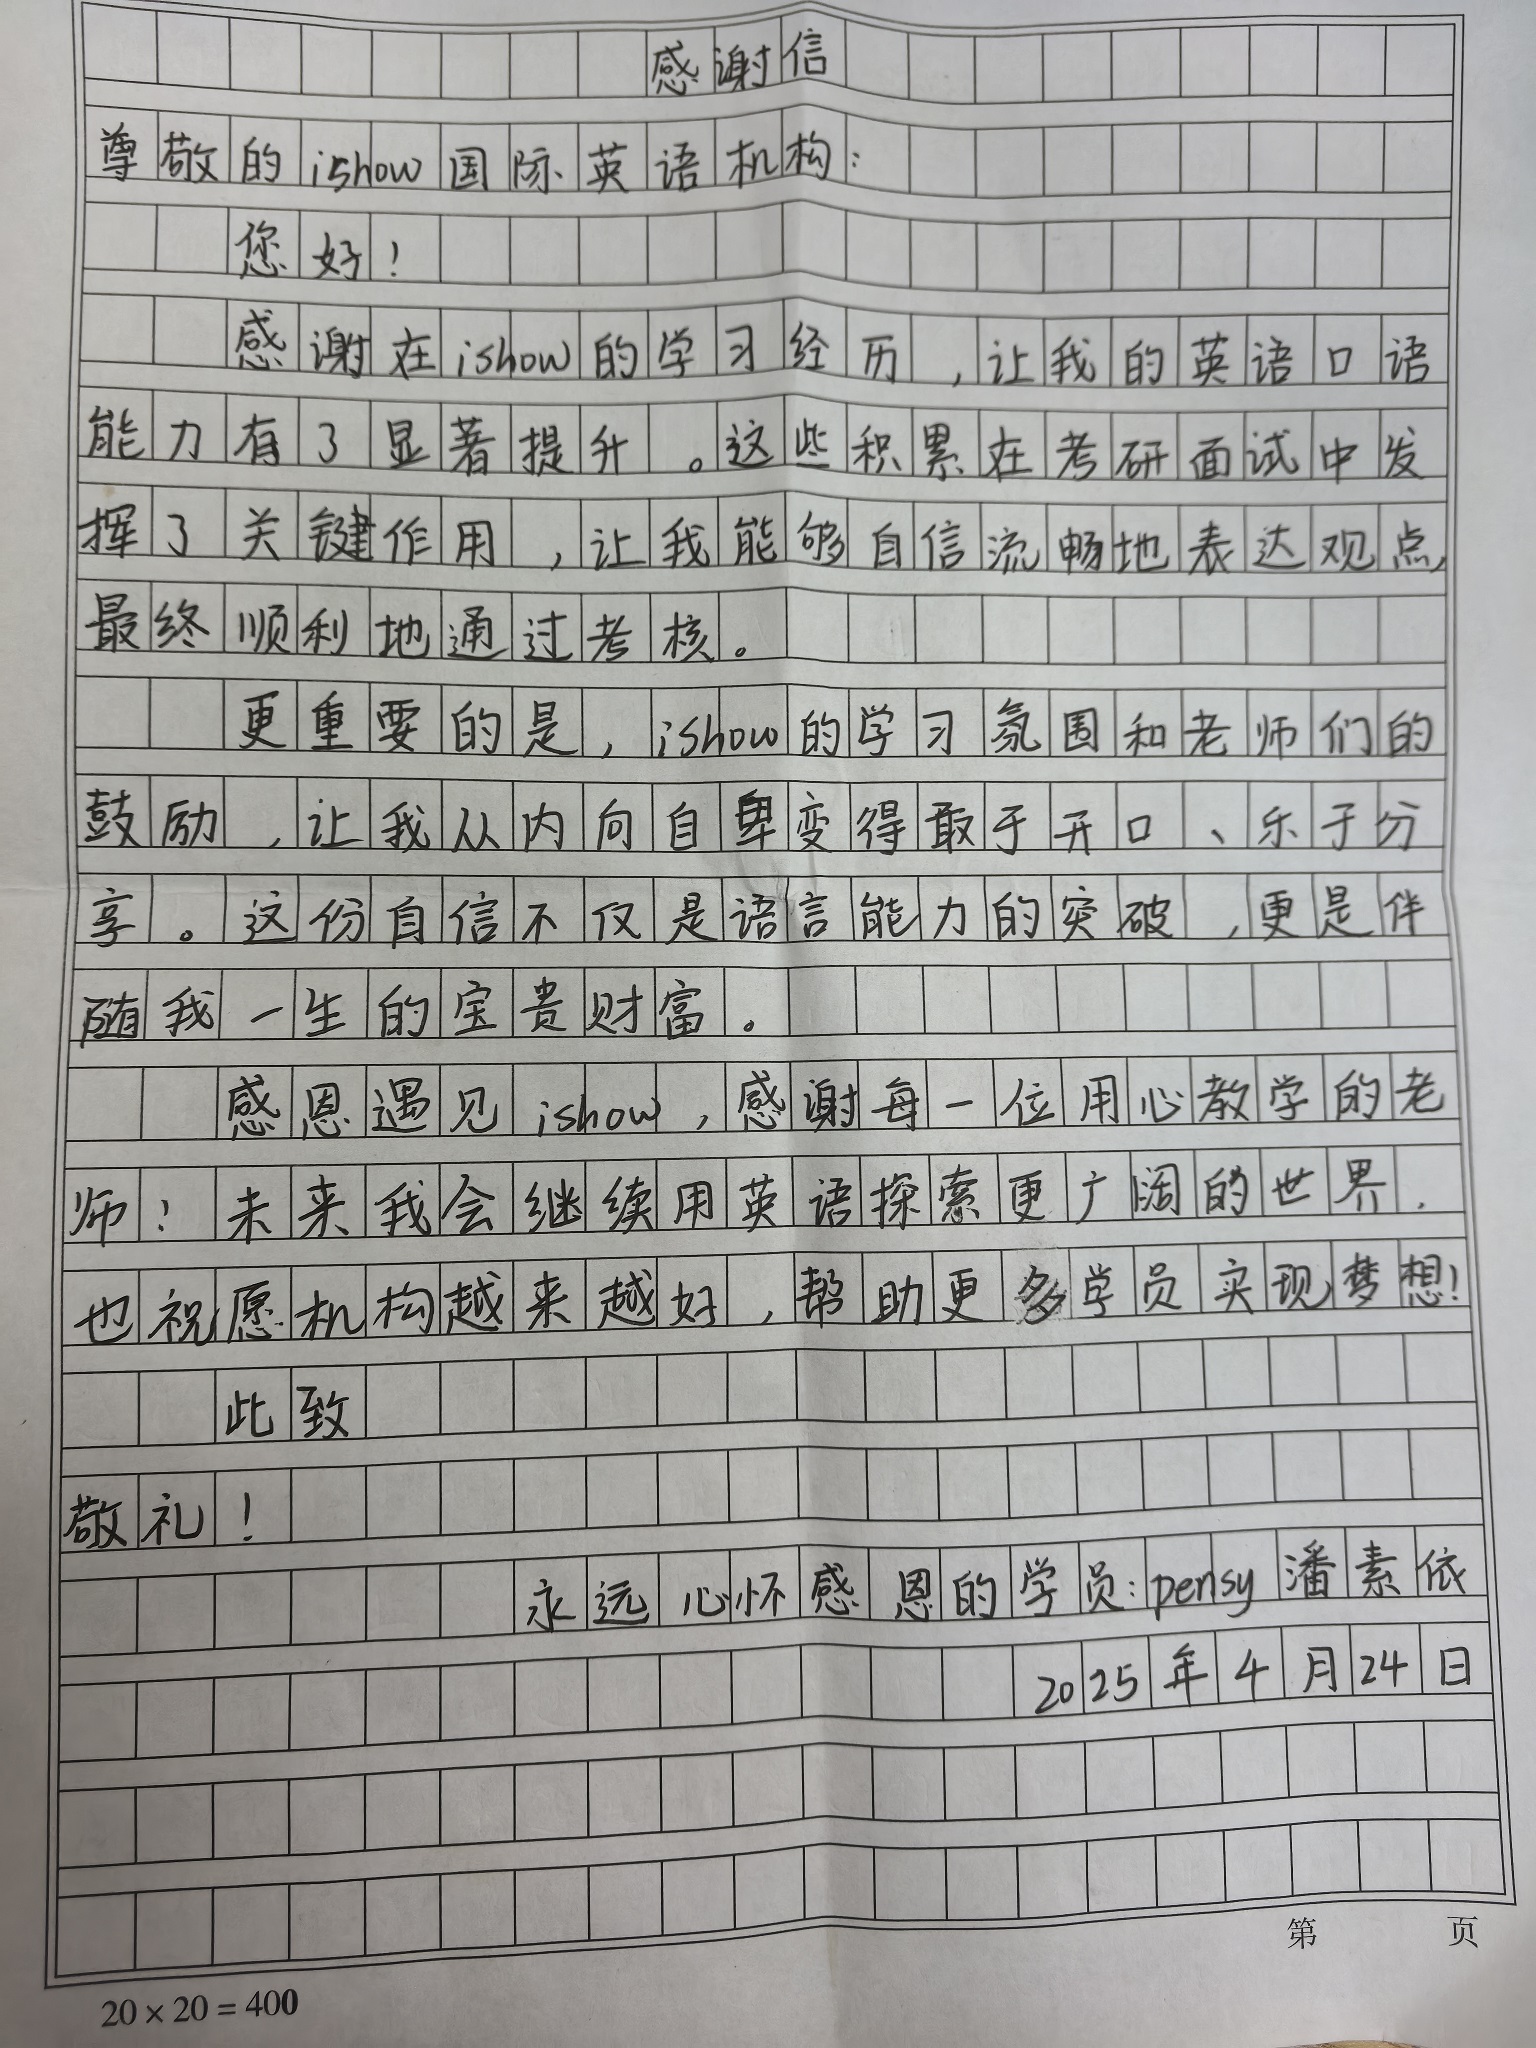 感谢信
尊敬的ishow国际英语机构：
您好！
感谢在ishow的学习经历，让我的英语口语
能力有了显著提升。这些积累在考研面试中发
挥了关键作用，让我能够自信流畅地表达观点，
最终顺利地通过考核。
更重要的是，ishow的学习氛围和老师们的
鼓励，让我从内向自卑变得敢于开口、乐于分
享。这份自信不仅是语言能力的突破，更是伴
随我一生的宝贵财富。
感恩遇见ishow，感谢每一位用心教学的老
师！未来我会继续用英语探索更广阔的世界.
也祝愿机构越来越好，帮助更多学员实现梦想！
此致
敬礼！
永远心怀感恩的学员：pensy潘素依
2025年4月24日
第 页
20×20=400